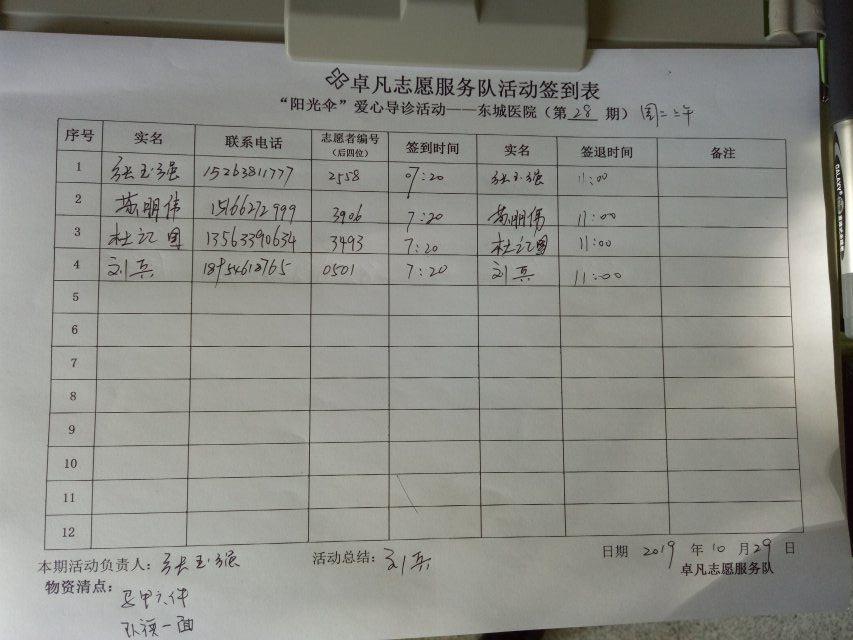 卓凡志愿服务队活动签到表
“阳光伞”爱心导诊活动——东城医院（第 28 期）周二上午
序号 实名 联系电话 志愿者编号（后四位） 签到时间 实名 签退时间 备注
1 张玉强 15263811777 2558 07:20 张玉强 11:00
2 苏明伟 15166272999 3906 7:20 苏明伟 11:00
3 杜记国 13563390634 3493 7:20 杜记国 11:00
4 刘兵 18954612765 0501 7:20 刘兵 11:00
5
6
7
8
9
10
11
12
本期活动负责人：张玉强 活动总结：刘兵 日期 2019 年 10 月 29 日
卓凡志愿服务队
物资清点：
马甲六件
队旗一面